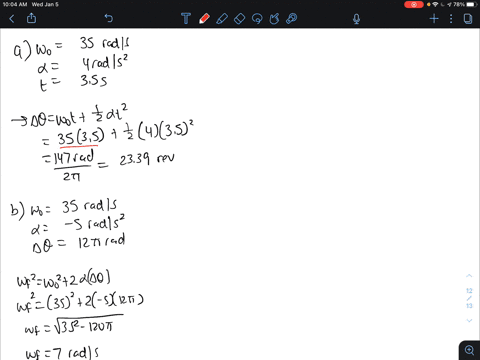 10:04 AM Wed Jan 5
78%
a) ω₀ = 35 rad/s
α = 4 rad/s²
t = 3.5s
→ Δθ = ω₀t + ½ αt²
= 35(3.5) + ½ (4)(3.5)²
= 147 rad / 2π = 23.39 rev
b) ω₀ = 35 rad/s
α = -5 rad/s²
Δθ = 12π rad
ωf² = ω₀² + 2α(Δθ)
ωf² = (35)² + 2(-5)(12π)
ωf = √35² - 120π
ωf = 7 rad/s
12
13